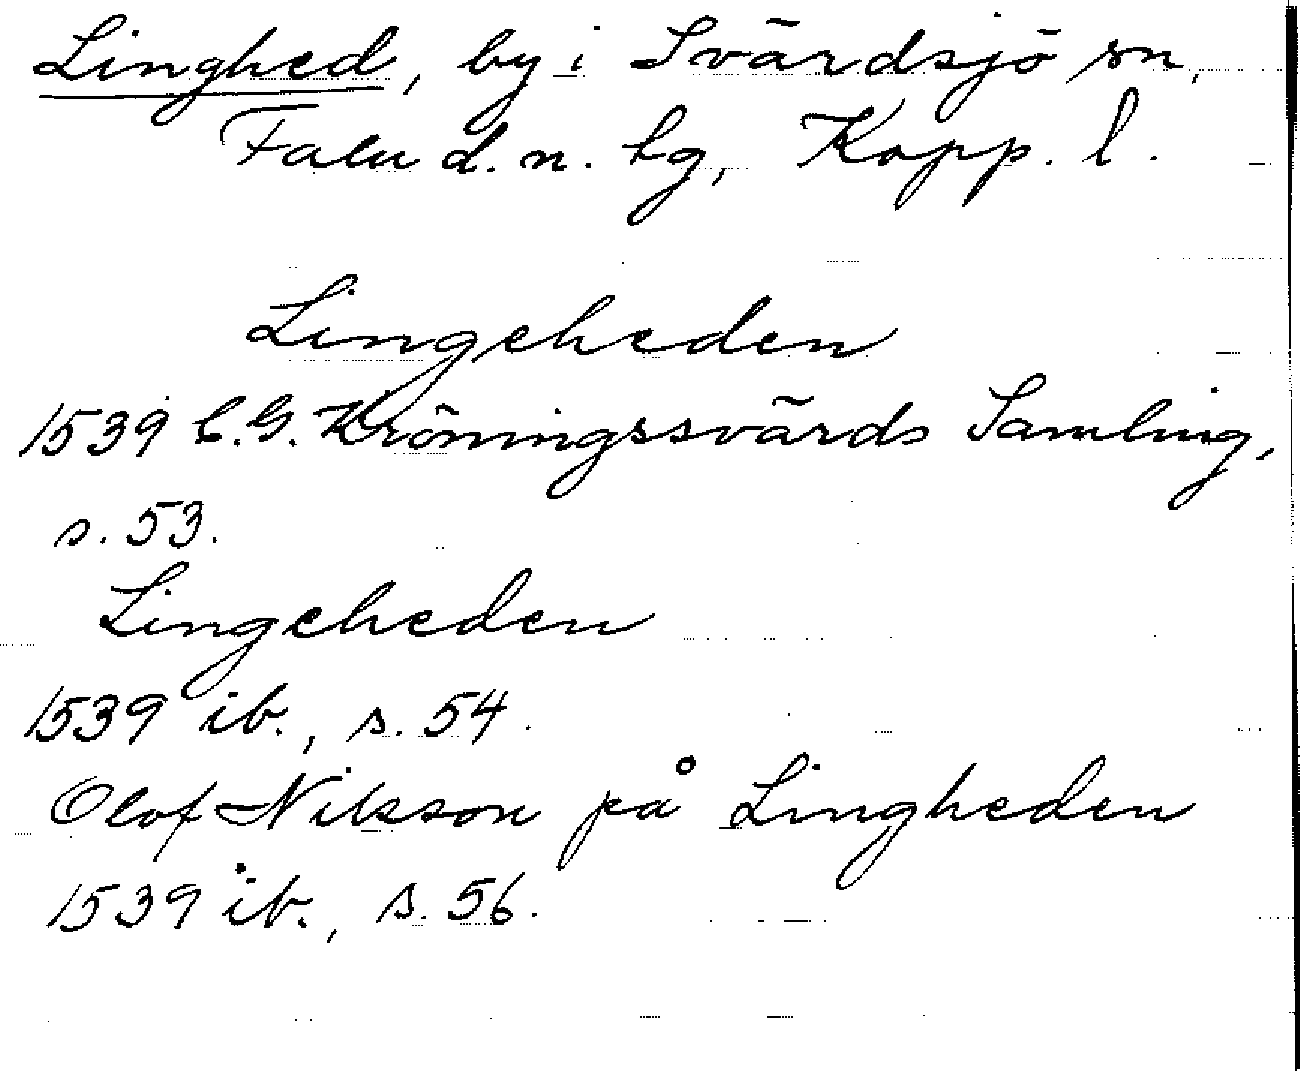 Linghed, by i Svärdsjö sn,
Falu d. n. hg, Kopp. l.
Lingeheden
1539 C. G. Kröningssvärds Samling,
s. 53.
Lingeheden
1539 ib., s. 54.
Olof Nilsson på Lingheden
1539 ib., s. 56.